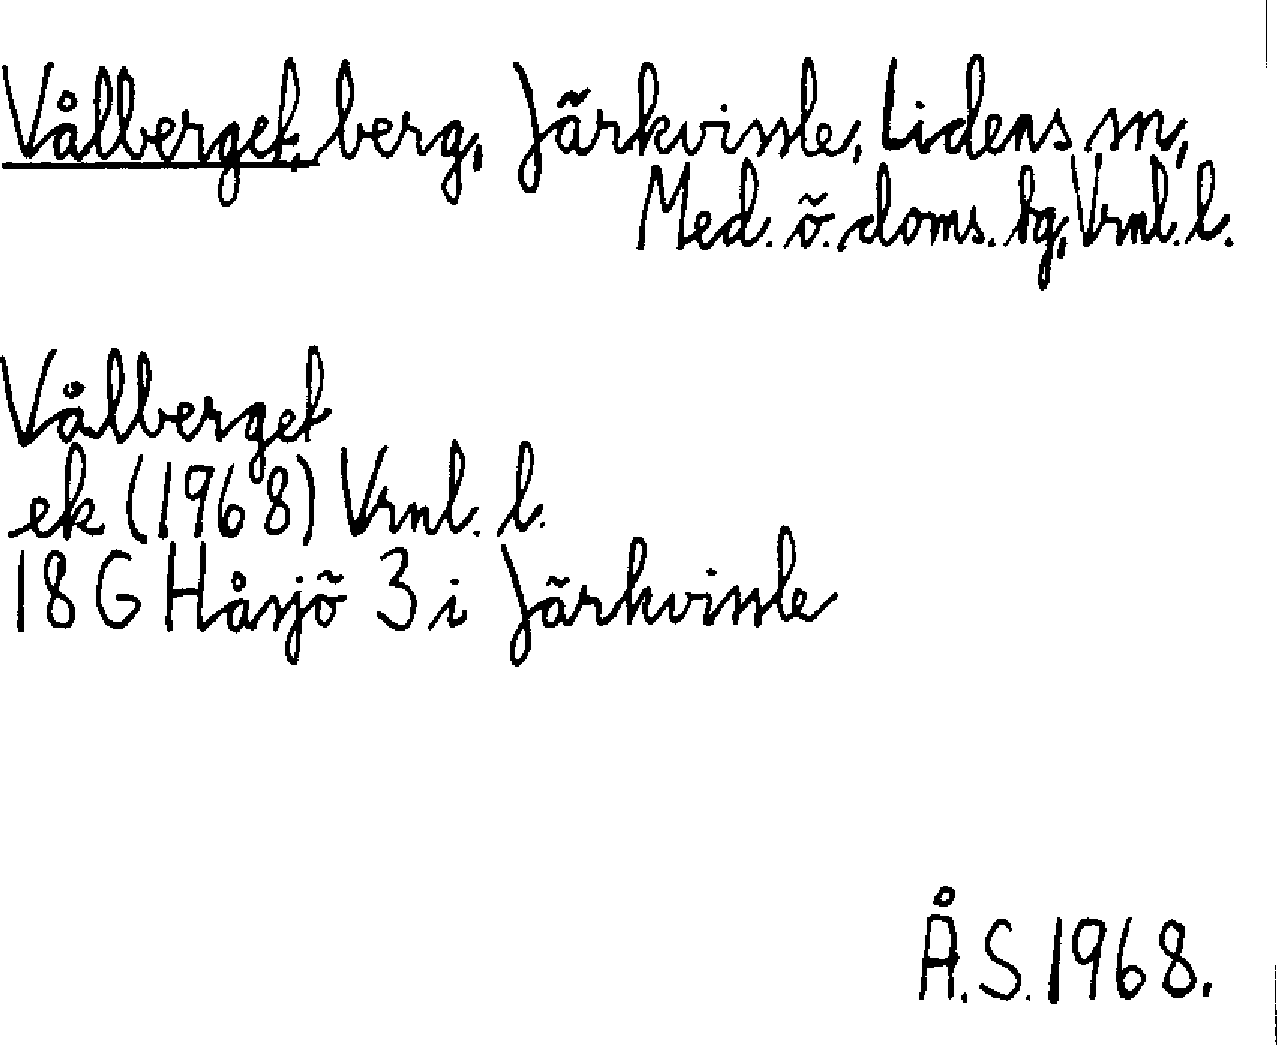 Vålberget, berg, Järkvissle, Lidens sn,
Med. ö. doms. tg, Vrnl. l.
Vålberget
ek (1968) Vrnl. l.
18 G Håsjö 3 i Järkvissle
Å.S. 1968.